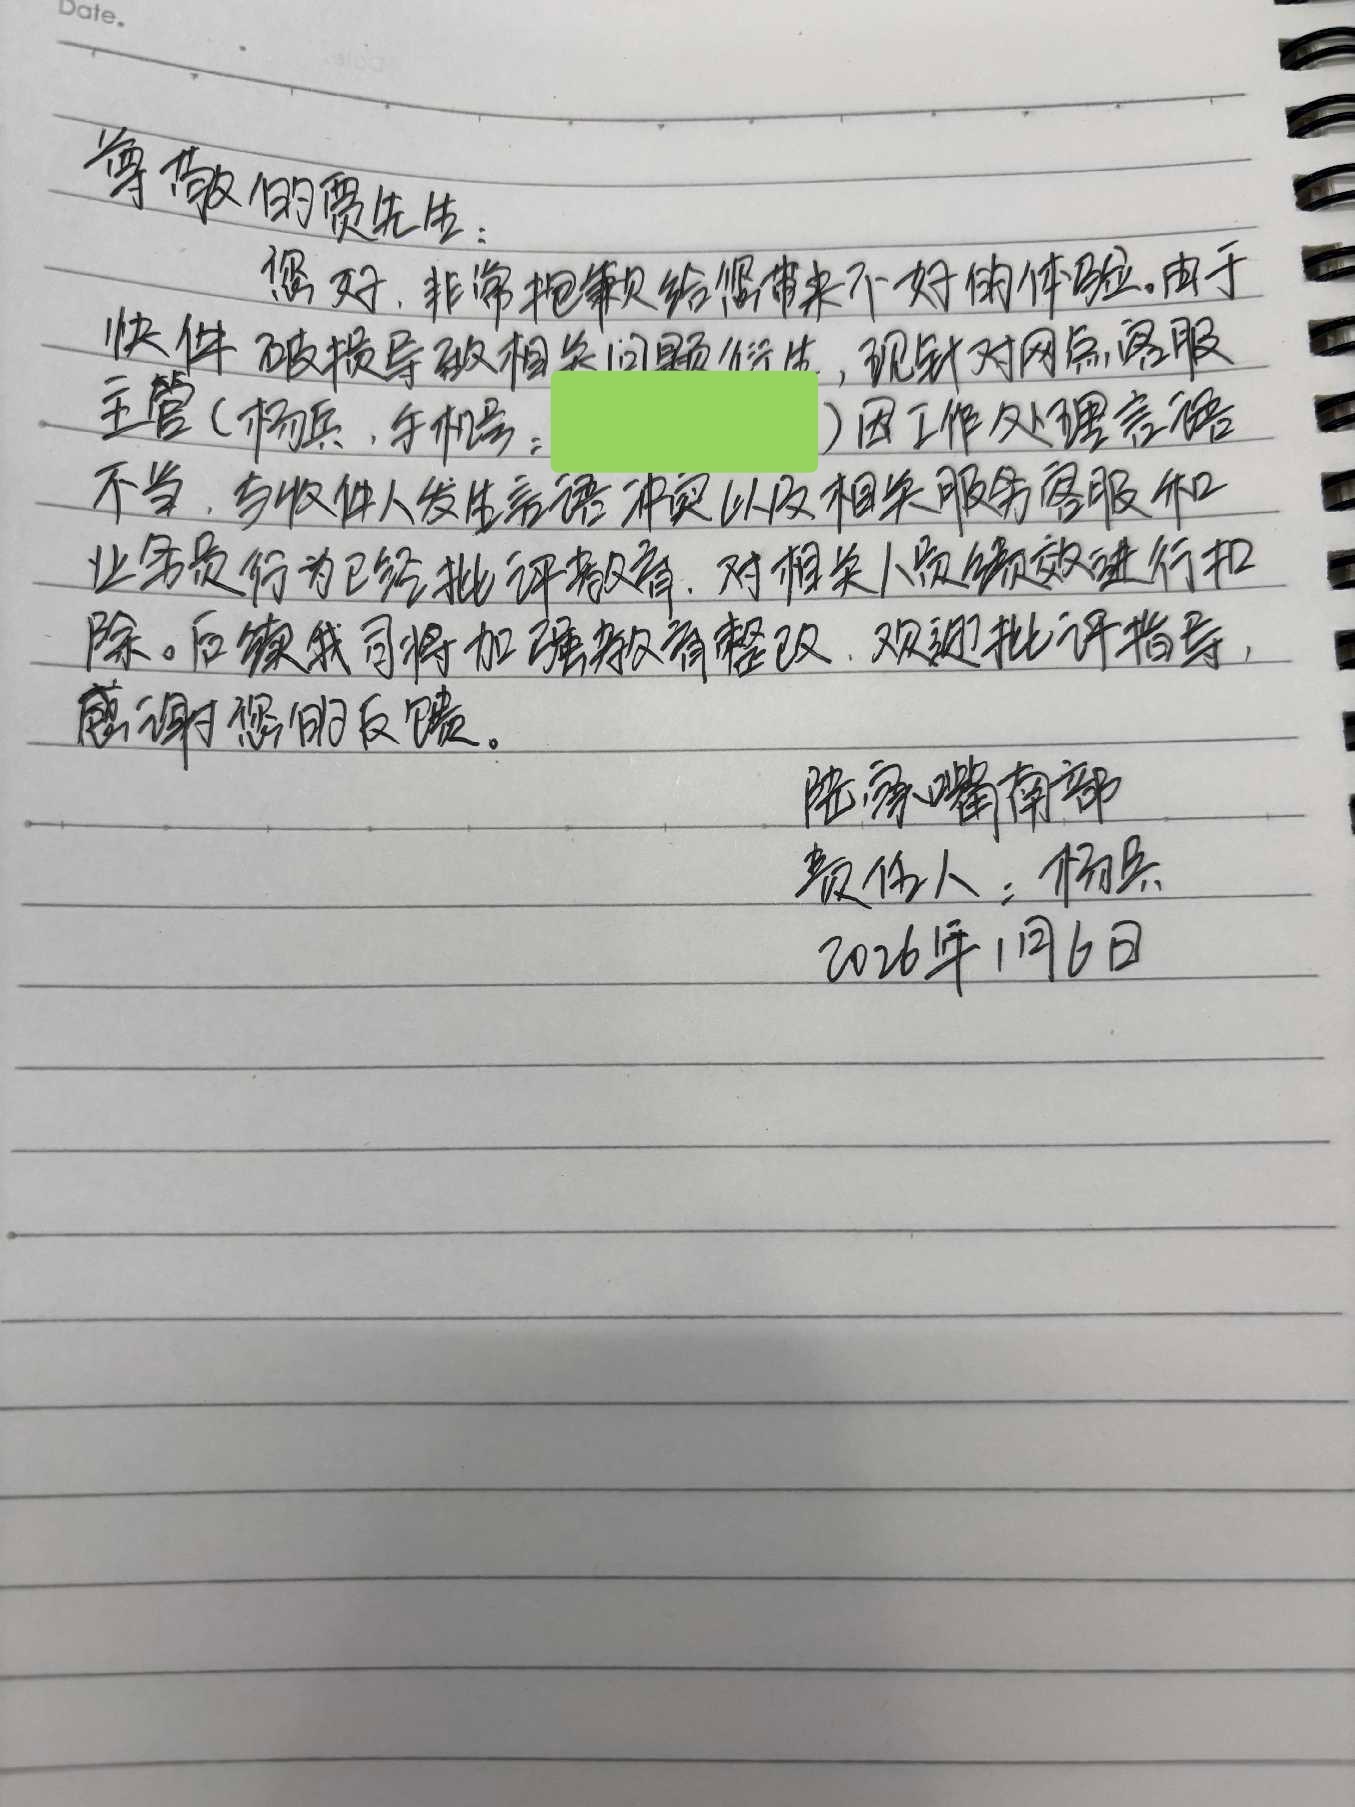 Date.
尊敬的贾先生：
您好，非常抱歉给您带来不好的体验。由于
快件破损导致相关问题衍生，现针对网点客服
主管（杨兵，手机号：）因工作处理言语
不当，与收件人发生言语冲突以及相关服务客服和
业务员行为已经批评教育，对相关人员绩效进行扣
除。后续我司将加强教育整改，欢迎批评指导，
感谢您的反馈。
陆家嘴南部
责任人：杨兵
2026年1月6日